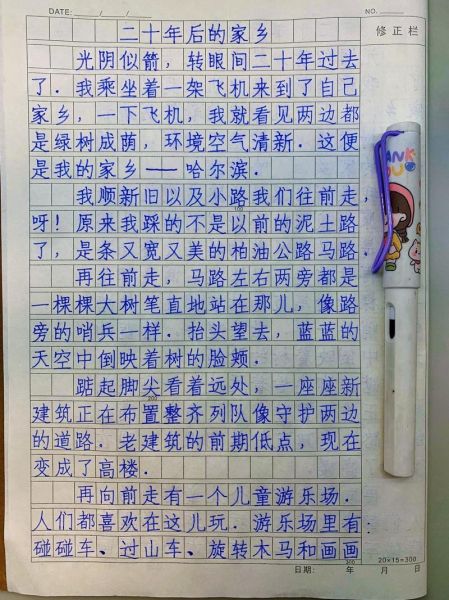 DATE: / /
NO.
二十年后的家乡
修正栏
光阴似箭，转眼间二十年过去
了．我乘坐着一架飞机来到了自己
家乡，一下飞机，我就看见两边都
是绿树成荫，环境空气清新．这便
是我的家乡——哈尔滨．
我顺新旧以及小路我们往前走，
100
呀！原来我踩的不是以前的泥土路
了，是条又宽又美的柏油公路马路．
再往前走，马路左右两旁都是
一棵棵大树笔直地站在那儿，像路
旁的哨兵一样．抬头望去，蓝蓝的
天空中倒映着树的脸颊．
踮起脚尖看着远处，一座座新
200
建筑正在布置整齐列队像守护两边
的道路．老建筑的前期低点，现在
变成了高楼．
再向前走有一个儿童游乐场．
人们都喜欢在这儿玩．游乐场里有：
碰碰车、过山车、旋转木马和画画
300
20×15=300
日期： 年 月 日